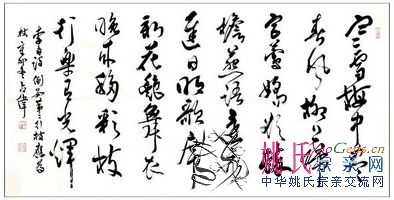 寒雪梅中盡
春風柳上歸
宮鶯嬌欲醉
檐燕語還飛
遲日明歌席
新花艷舞衣
晚來移彩仗
行樂光輝
李白詩
姚氏宗亲网
中华姚氏宗亲交流网